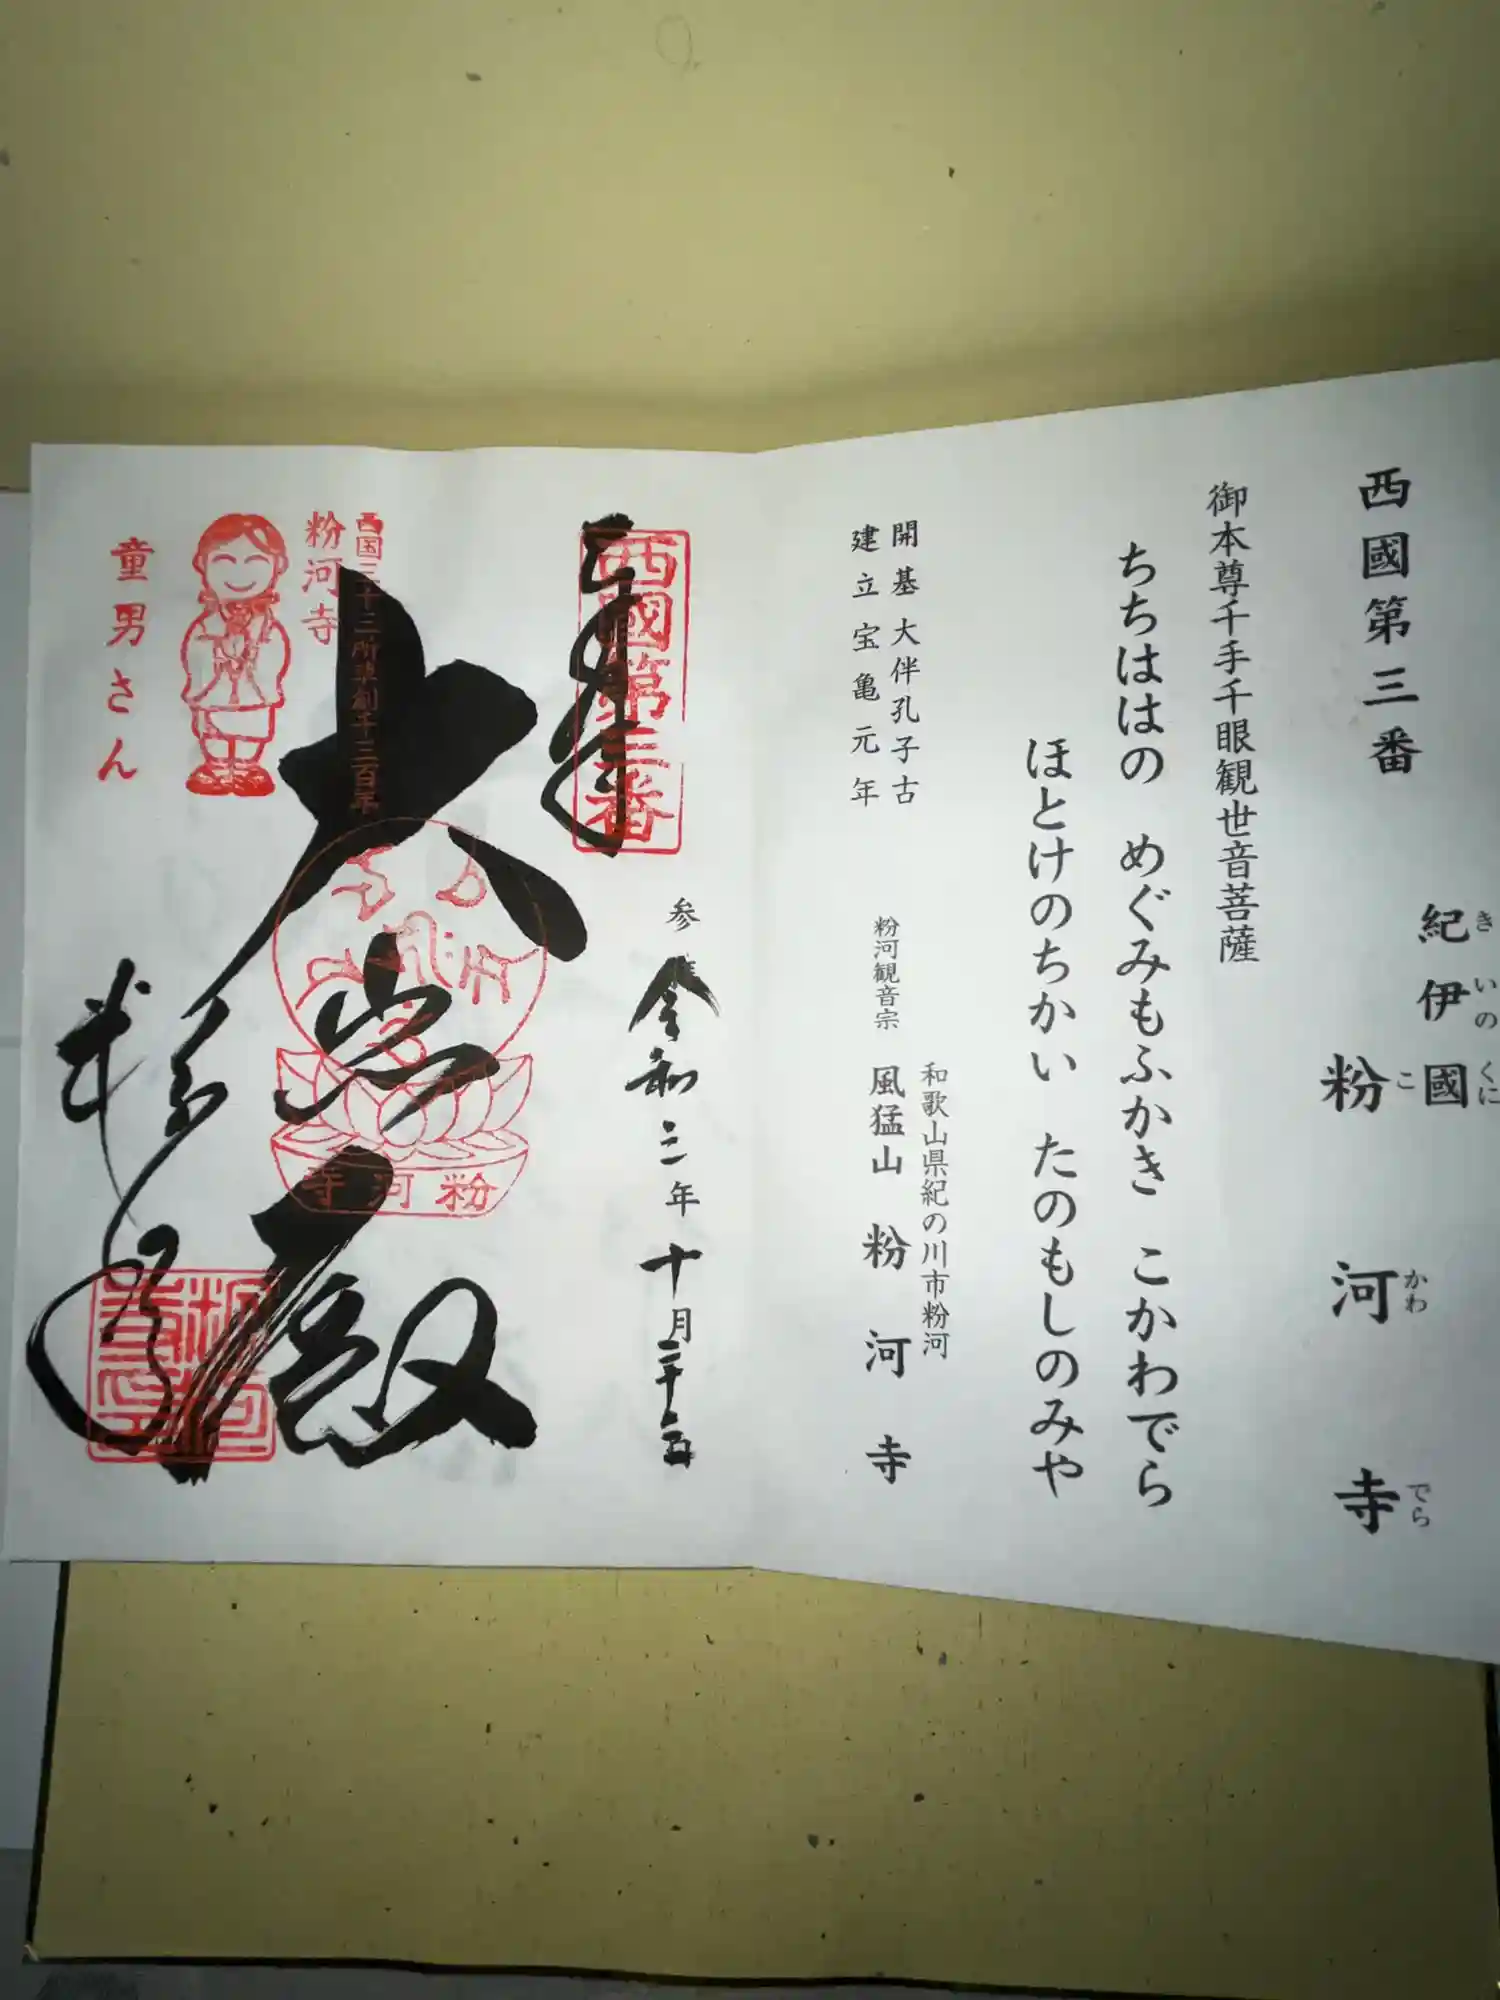 西國第三番
紀伊國
きいのくに
粉河寺
こかわでら
御本尊千手千眼観世音菩薩
ちちははの めぐみもふかき こかわでら
ほとけのちかい たのもしのみや
開基大伴孔子古
建立宝亀元年
和歌山県紀の川市粉河
粉河観音宗 風猛山 粉河寺
奉
西國第三番
参
令和三年十月二十五
大悲殿
粉河寺
西国三十三所草創千三百年
粉河寺
童男さん
粉河寺